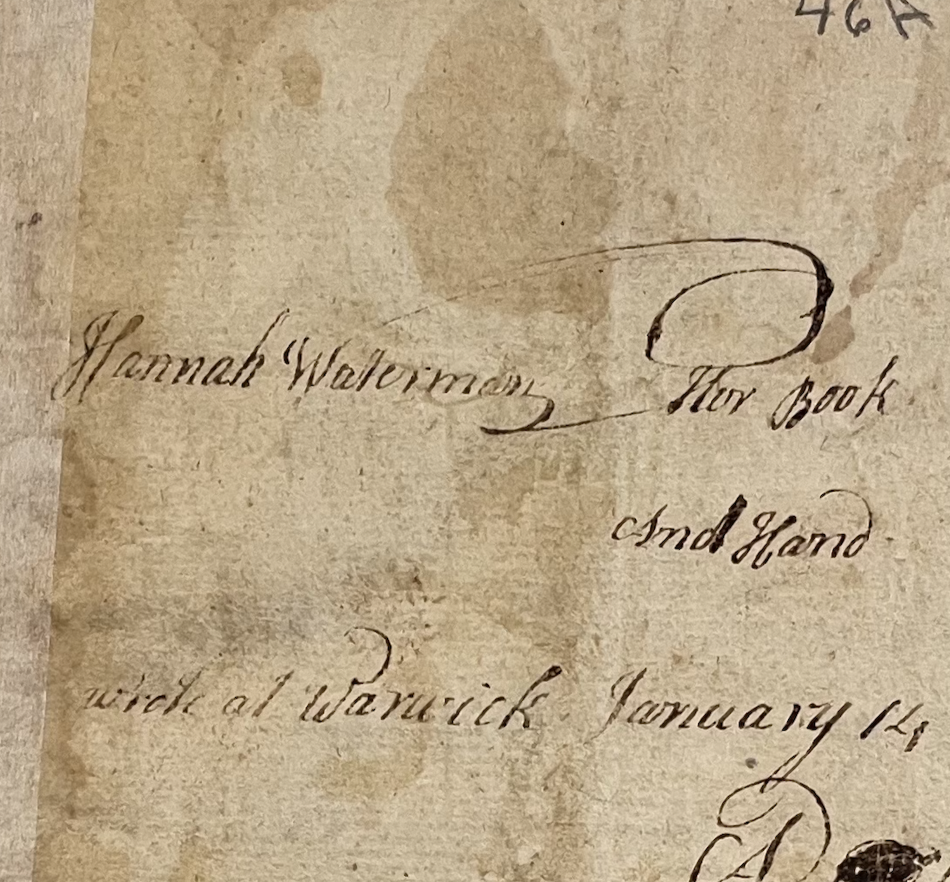 46A
Hannah Waterman Her Book
And Hand
wrote at Warwick January 14
A D